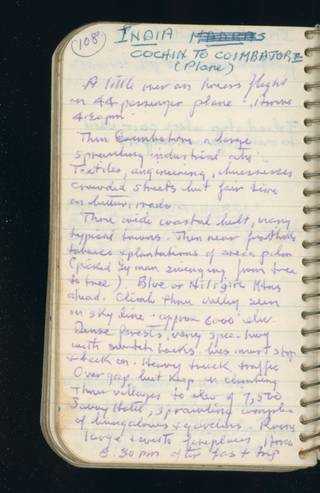 108
INDIA
COCHIN TO COIMBATORE
(Plane)
A little over an hours flight
in 44 passenger plane. Arrive
4:20 pm
Thru Coimbatore a large
sprawling industrial city.
Textiles, engineering, businesses
crowded streets but fair time
on better roads.
Thru wide coastal belt, many
typical towns. Then near foothills
tobacco + plantations of areca palm
(picked by man swinging from tree
to tree). Blue or Nilgiris Mtns
ahead. Climb thru valley seen
on sky line - approx 6000' elev.
Dense forests, very spec. hwy
with switch backs, bus must stop
+ back on. Heavy truck traffic
Over gap but keep on climbing
thru villages to elev of 7,500
Savoy Hotel, sprawling complex
of bungalows + gardens. Room
large + with fireplaces. Arrive
8:30 pm after fast trip